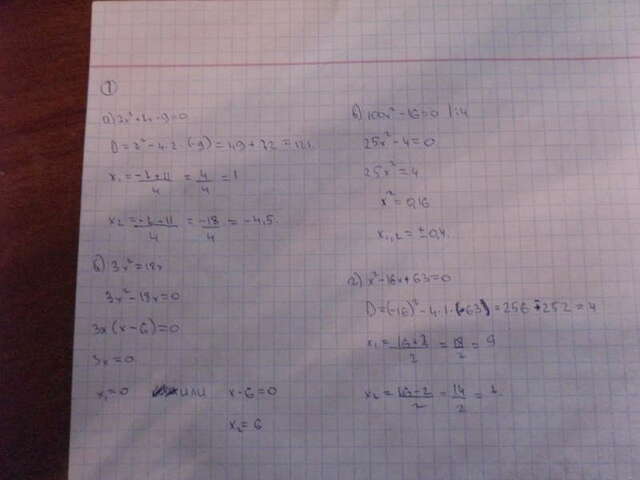 ①
а) 2x² + 7x - 9 = 0
D = 7² - 4·2·(-9) = 49 + 72 = 121
x₁ = (-7+11)/4 = 4/4 = 1
x₂ = (-7-11)/4 = -18/4 = -4,5.
б) 3x² = 18x
3x² - 18x = 0
3x(x - 6) = 0
3x = 0
x₁ = 0 или x - 6 = 0
x₂ = 6
в) 100x² - 16 = 0 |:4
25x² - 4 = 0
25x² = 4
x² = 0,16
x₁,₂ = ±0,4.
г) x² - 16x + 63 = 0
D = (-16)² - 4·1·63) = 256 - 252 = 4
x₁ = (16+2)/2 = 18/2 = 9
x₂ = (16-2)/2 = 14/2 = 7